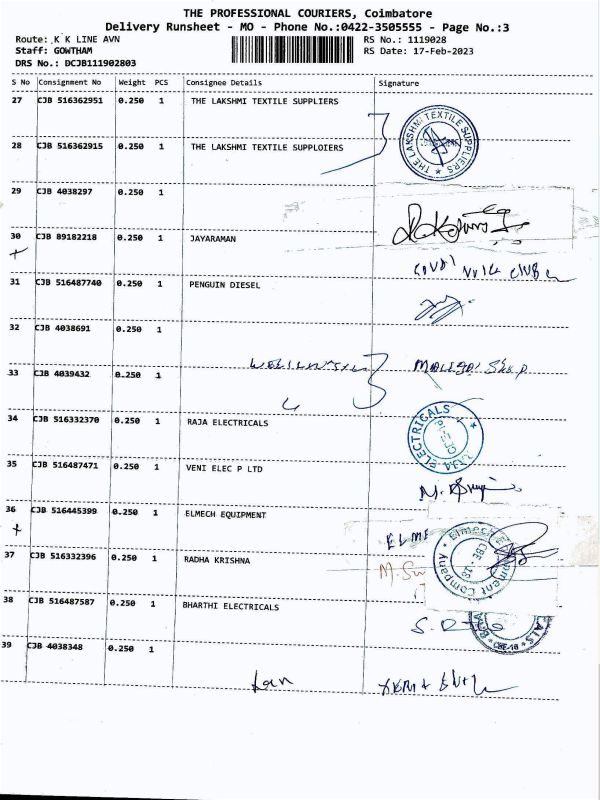 THE PROFESSIONAL COURIERS, Coimbatore
Delivery Runsheet - MO - Phone No.:0422-3505555 - Page No.:3
Route: K K LINE AVN RS No.: 1119028
Staff: GOWTHAM RS Date: 17-Feb-2023
DRS No.: DCJB111902803
S No Consignment No Weight PCS Consignee Details Signature
27 CJB 516362951 0.250 1 THE LAKSHMI TEXTILE SUPPLIERS
THE LAKSHMI TEXTILE SUPPLIERS
28 CJB 516362915 0.250 1 THE LAKSHMI TEXTILE SUPPLOIERS
29 CJB 4038297 0.250 1
30 CJB 89182218 0.250 1 JAYARAMAN
31 CJB 516487740 0.250 1 PENGUIN DIESEL
32 CJB 4038691 0.250 1
33 CJB 4039432 0.250 1
34 CJB 516332370 0.250 1 RAJA ELECTRICALS
ELECTRICALS
35 CJB 516487471 0.250 1 VENI ELEC P LTD
36 CJB 516445399 0.250 1 ELMECH EQUIPMENT
37 CJB 516332396 0.250 1 RADHA KRISHNA
38 CJB 516487587 0.250 1 BHARTHI ELECTRICALS
39 CJB 4038348 0.250 1